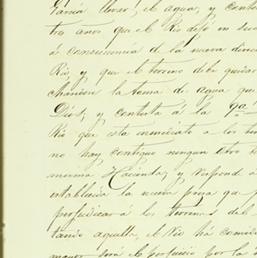 García Urro, el agua, y contes
tro años que el Río dejó en su
á consecuencia de la nueva direcc
Río, y que el terreno debe quedar
la toma de agua que
Dios, y contesta á la 9a
Río que esta inmediato a los
no hay contiguo ningun otro
misma Hacienda, y responde
establecida la nueva presa que
perjudicar á los terrenos del
tando aquella, el Río ha
mayor será el perjuicio por la